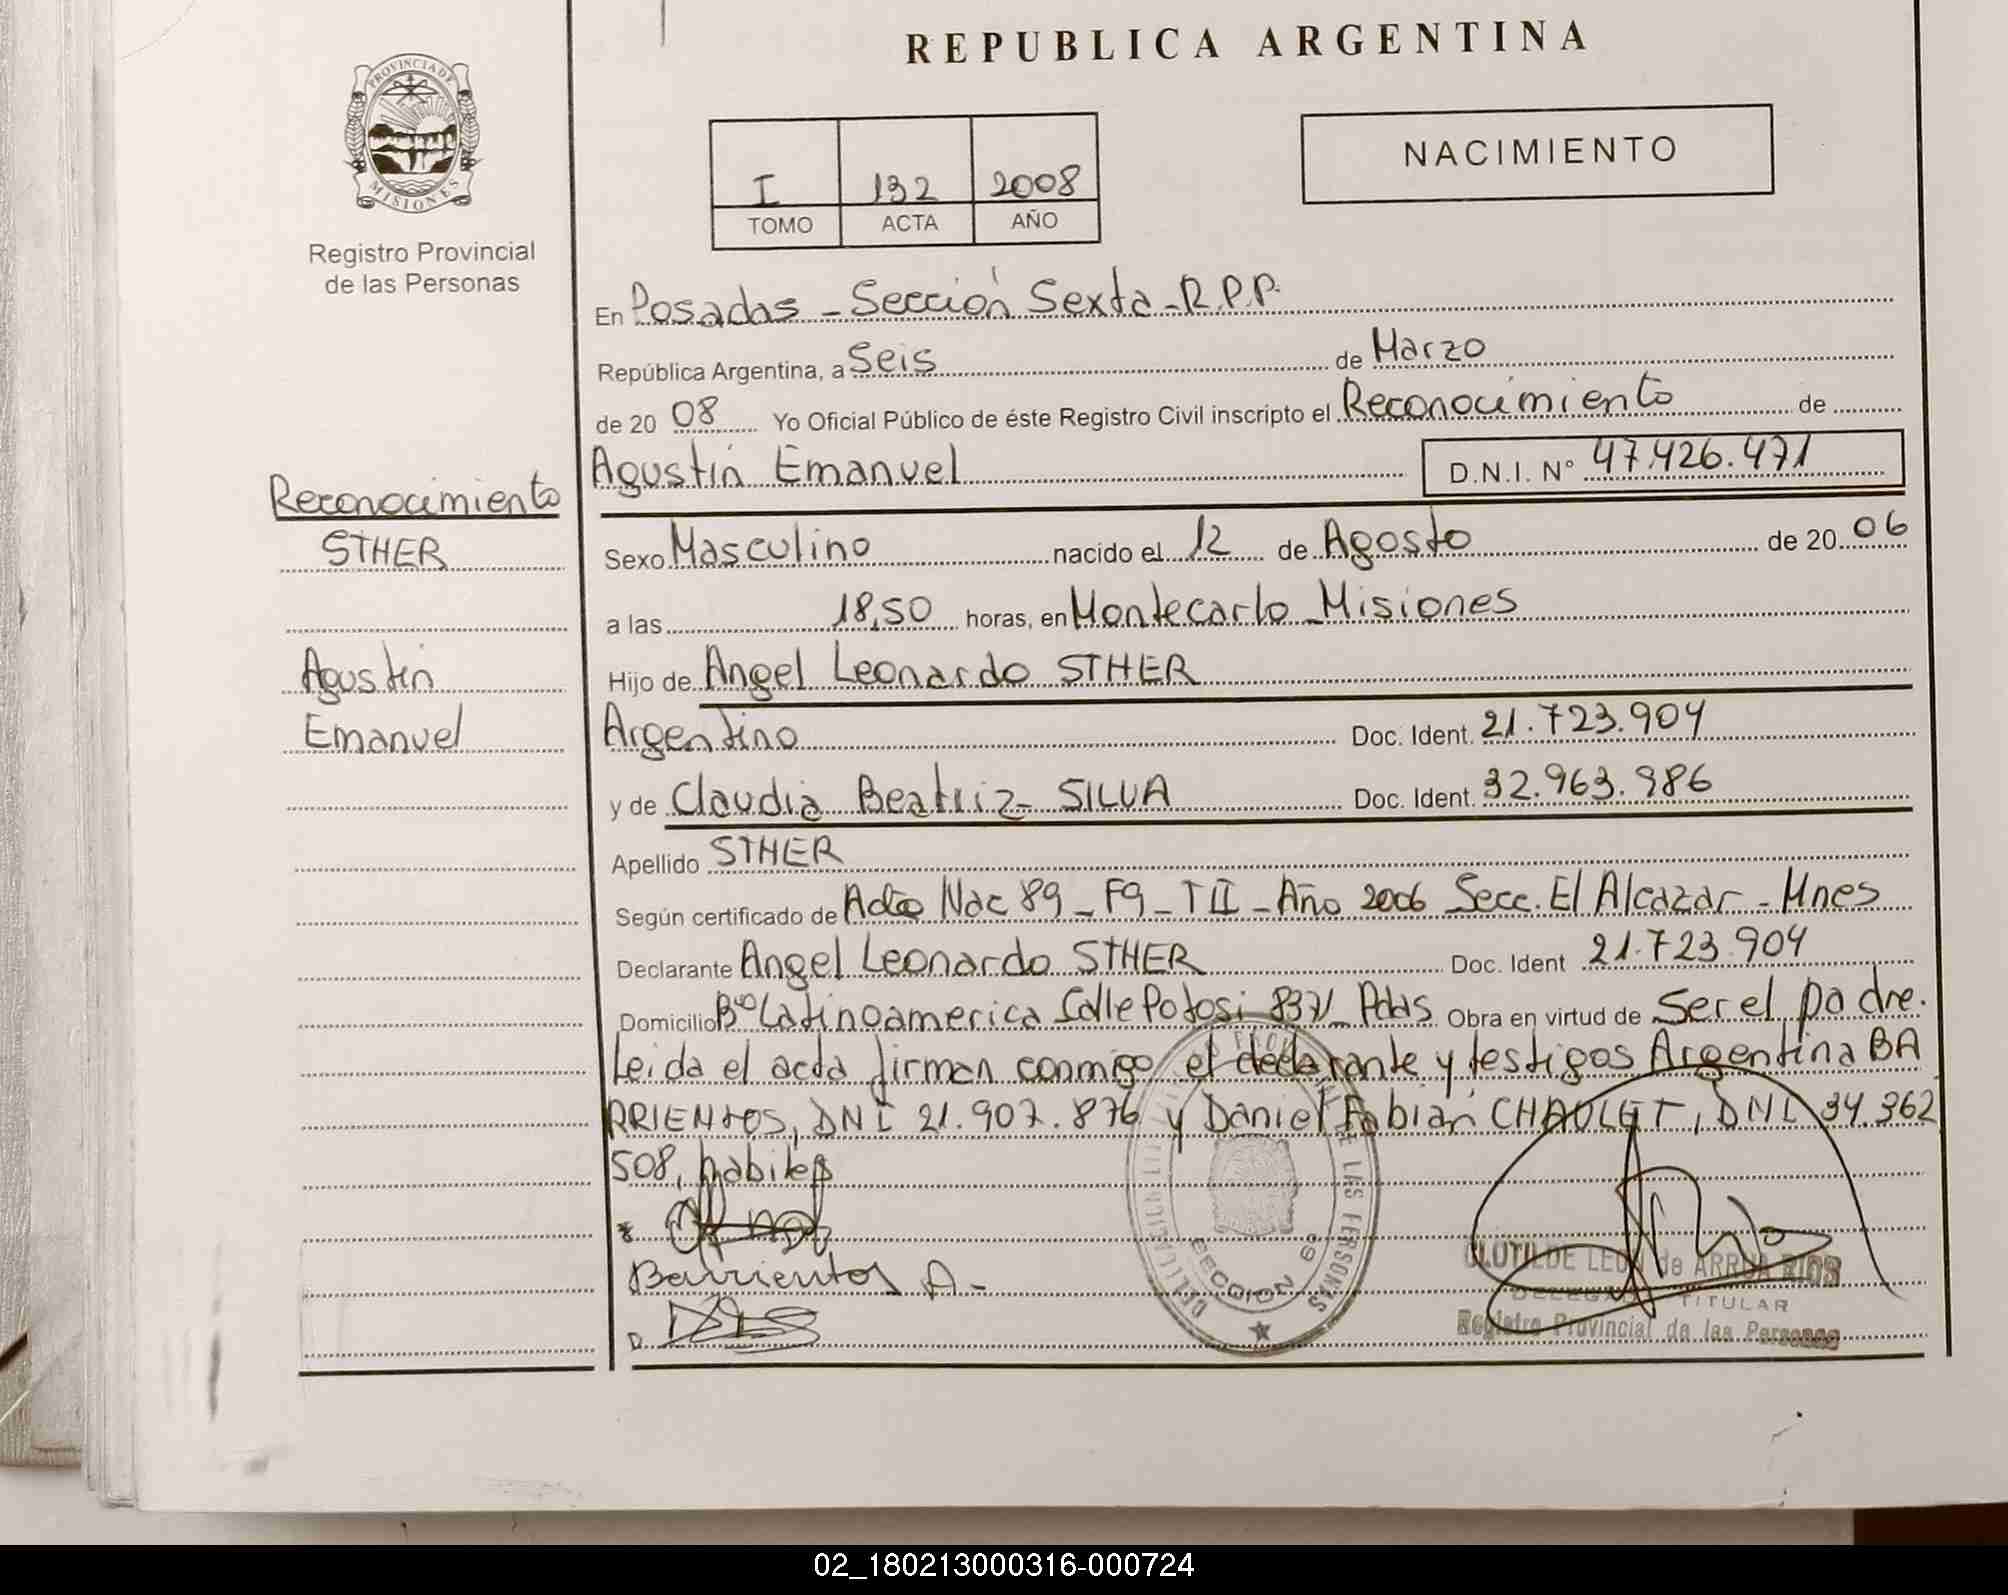 REPUBLICA ARGENTINA
PROVINCIA DE
MISIONES
Registro Provincial
de las Personas
NACIMIENTO
I 132 2008
TOMO ACTA AÑO
En Posadas - Sección Sexta - R.P.P.
República Argentina, a Seis de Marzo
de 20 08 Yo Oficial Público de éste Registro Civil inscripto el Reconocimiento de
Agustín Emanuel D.N.I. N° 47.426.471
Reconocimiento
STHER
Agustín
Emanuel
Sexo Masculino nacido el 12 de Agosto de 20 06
a las 18,50 horas, en Montecarlo - Misiones
Hijo de Angel Leonardo STHER
Argentino Doc. Ident. 21.723.904
y de Claudia Beatriz - SILVA Doc. Ident. 32.963.986
Apellido STHER
Según certificado de Acta Nac 89 - F9 - TII - Año 2006 Secc. El Alcazar - Mnes
Declarante Angel Leonardo STHER Doc. Ident 21.723.904
Domicilio B° Latinoamerica Calle Potosi 8371 - Pdas Obra en virtud de Ser el padre.
Leida el acta firman conmigo el declarante y testigos Argentina BA
RRIENTOS, DNI 21.907.876 y Daniel Fabián CHAULET, DNI 34.362
508, habiles
Barrientos A -
DE LAS PERSONAS
SECCION 6º
CLOTILDE LEON de ARRUA RIOS
DELEGADA TITULAR
Registro Provincial de las Personas
02_180213000316-000724